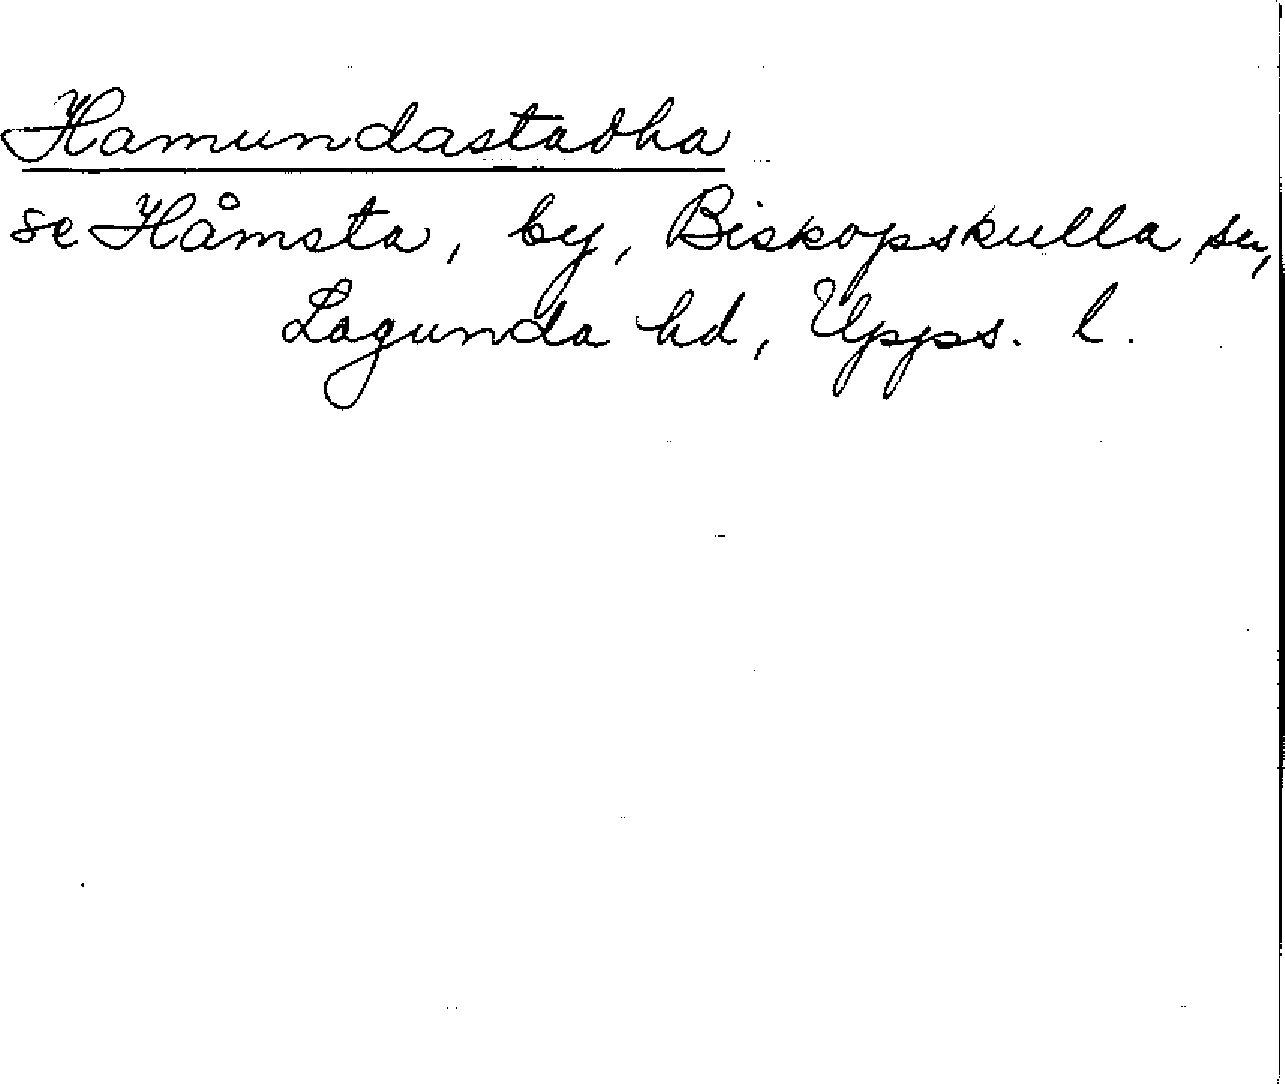 Hamundastadha
se Håmsta, by, Biskopskulla sn,
Lagunda hd, Upps. l.